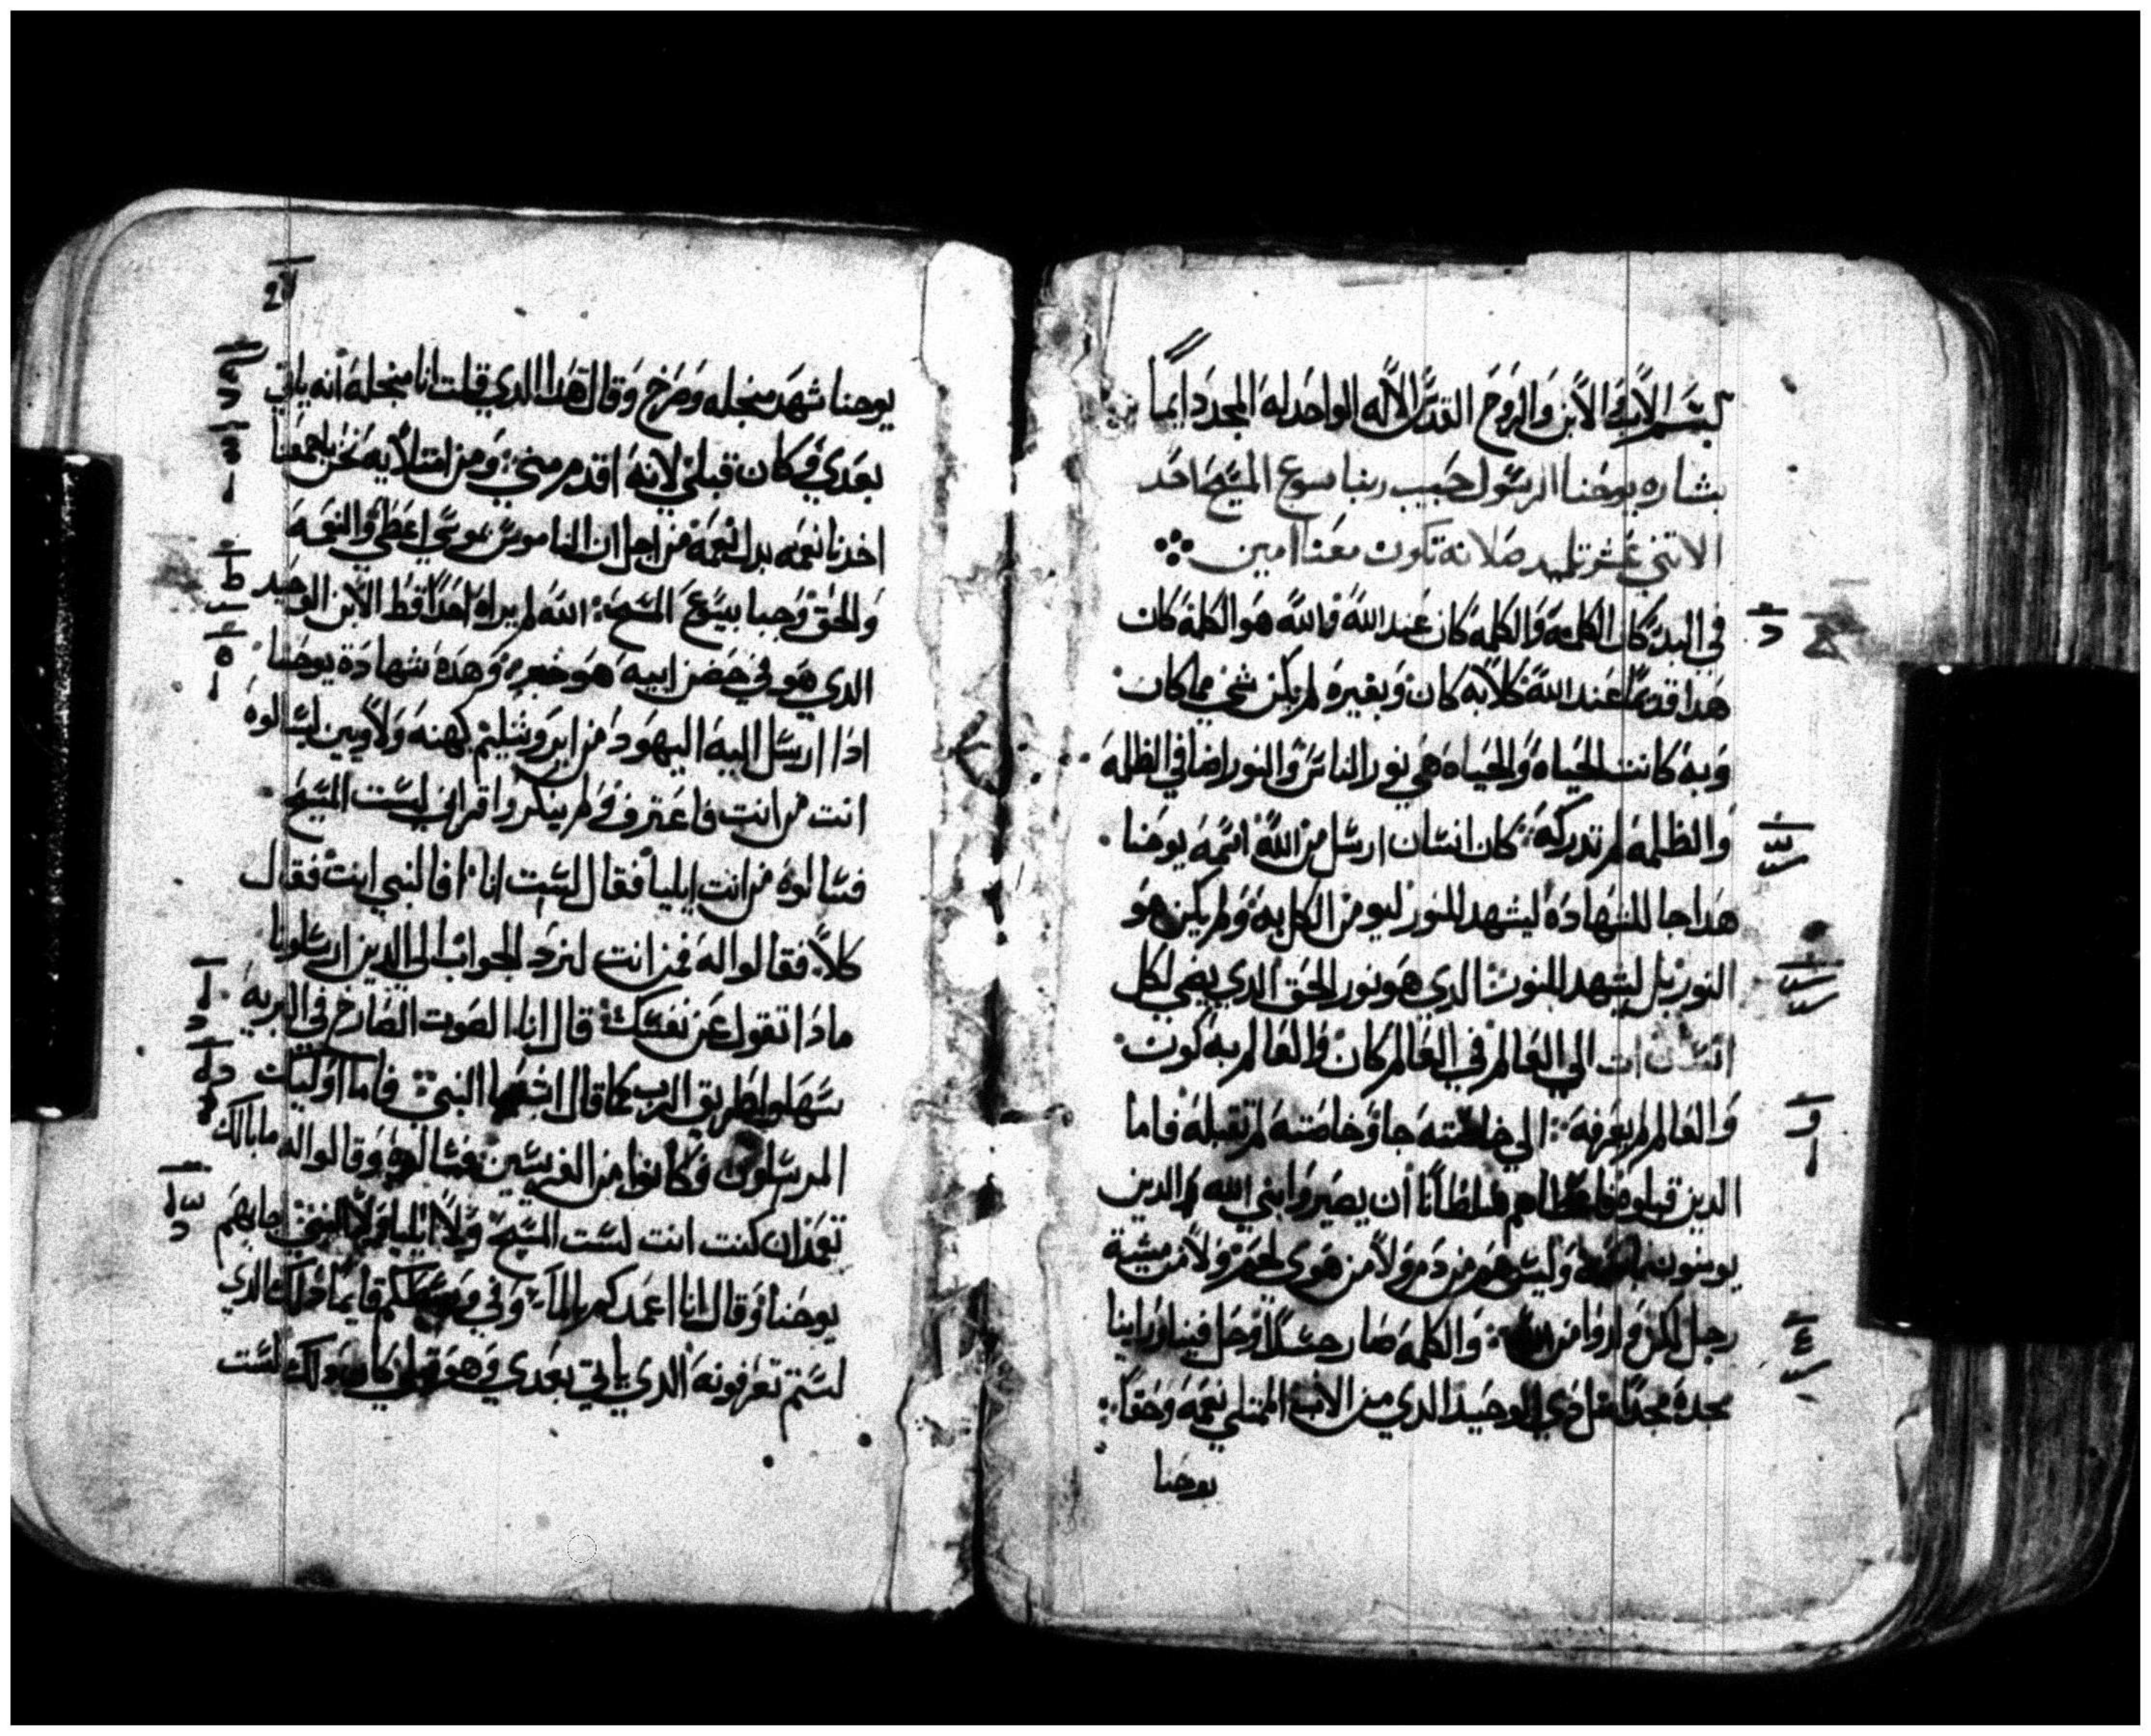 بسم الاب والابن والروح القدس الاله الواحد له المجد دايماً
بشاره يوحنا الرسول حبيب ربنا يسوع المسيح احد
الاتني عشر تلميد صلاته تكون معنا امين
في البدء كان الكلمه والكلمه كان عند الله والله هو الكلمه كان
هدا قديماً عند الله كلاً به كان وبغيره لم يكن شي مما كان
وبه كانت الحياه والحياه هي نور الناس والنور اضا في الظلمه
والظلمه لم تدركه كان انسان ارسل من الله اسمه يوحنا
هدا جا للشهاده ليشهد للنور ليومن الكل به ولم يكن هو
النور بل ليشهد للنور الدي هو نور الحق الدي يضي لكل
انسان ات الي العالم في العالم كان والعالم به كون
والعالم لم يعرفه الي خاصته جا وخاصته لم تقبله فاما
الدين قبلوه فاعطاهم سلطاناً ان يصيروا بني الله الدين
يومنون باسمه وليس هم من دم ولا من هوي لحم ولا من مشية
رجل لكن ولدوا من الله والكلمه صار جسداً وحل فينا وراينا
مجده مجداً مثل الوحيد الدي من الاب الممتلي نعمه وحقاً
يوحنا
يوحنا شهد من اجله وصرخ وقال هدا الدي قلت انا من اجله انه ياتي
بعدي وكان قبلي لانه اقدم مني ومن امتلايه نحن باجمعنا
اخدنا نعمه بدل نعمه من اجل ان الناموس بموسي اعطي والنعمه
والحق وجبا بيسوع المسيح الله لم يراه احداً قط الابن الوحيد
الدي هو في حضن ابيه هو خبر وهده شهادة يوحنا
ادا ارسل اليه اليهود من ايروشليم كهنه ولاويين ليسالوه
انت من انت فاعترف ولم ينكر واقر اني لست المسيح
فسالوه من انت ايليا فقال لست انا افالنبي انت فقال
كلا فقالوا له فمن انت لنرد الجواب الي الدين ارسلونا
مادا تقول عن نفسك قال انا الصوت الصارخ في البريه
سهلوا طريق الرب كما قال اشعيا النبي فاما اوليك
المرسلون فكانوا من الفريسين فسالوه وقالوا له ما بالك
تعمد ان كنت انت لست المسيح ولا ايليا ولا النبي اجابهم
يوحنا وقال انا اعمدكم بالماء وفي وسطكم قايماً دلك الدي
لستم تعرفونه الدي ياتي بعدي وهو قبلي كان دلك لست